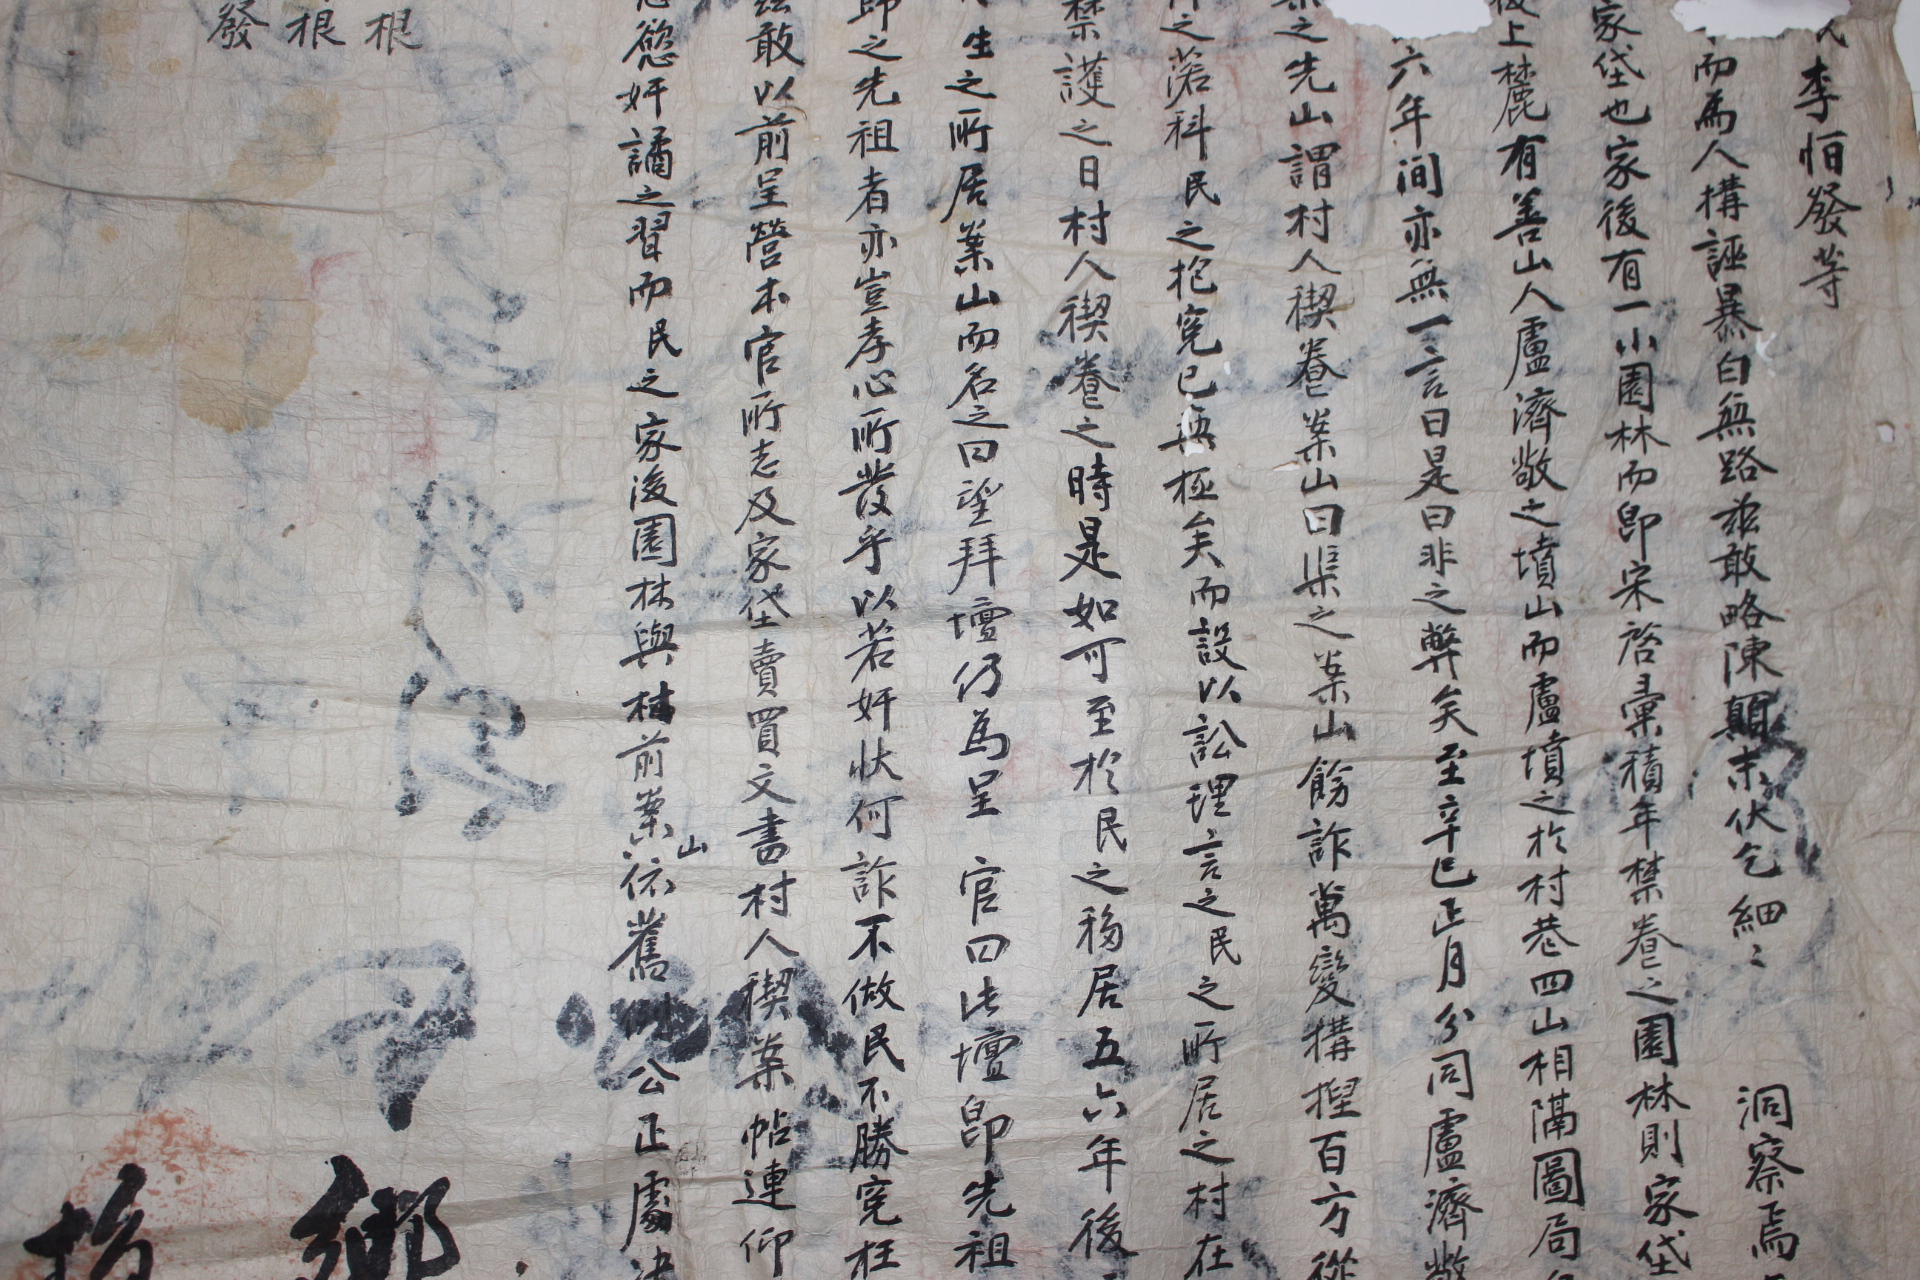 李怕發等
而爲人搆誣暴白無路玆敢略陳顚末伏乞細〻 洞察焉
家垈也家後有一小園林而卽宋啓彙積年禁養之園林則家垈
上麓有善山人盧濟敞之墳山而盧墳之於村巷四山相隔圖局
六年間亦無一言曰是曰非之弊矣至辛巳正月分同盧濟敞
之先山謂村人稧養案山曰渠之案山餙詐萬變搆捏百方從
之溶科民之抱寃已無極矣而設以訟理言之民之所居之村在
禁護之日村人稧養之時是如可至於民之移居五六年後
生之所居案山而名之曰望拜壇仍爲呈 官曰此壇卽先祖
之先祖者亦豈孝心所發乎以若奸狀何詐不做民不勝寃枉
玆敢以前呈營本官所志及家垈賣買文書村人稧案帖連仰
慾奸譎之習而民之家後園林與村前案山依舊例公正處決
根
根
發
鄕